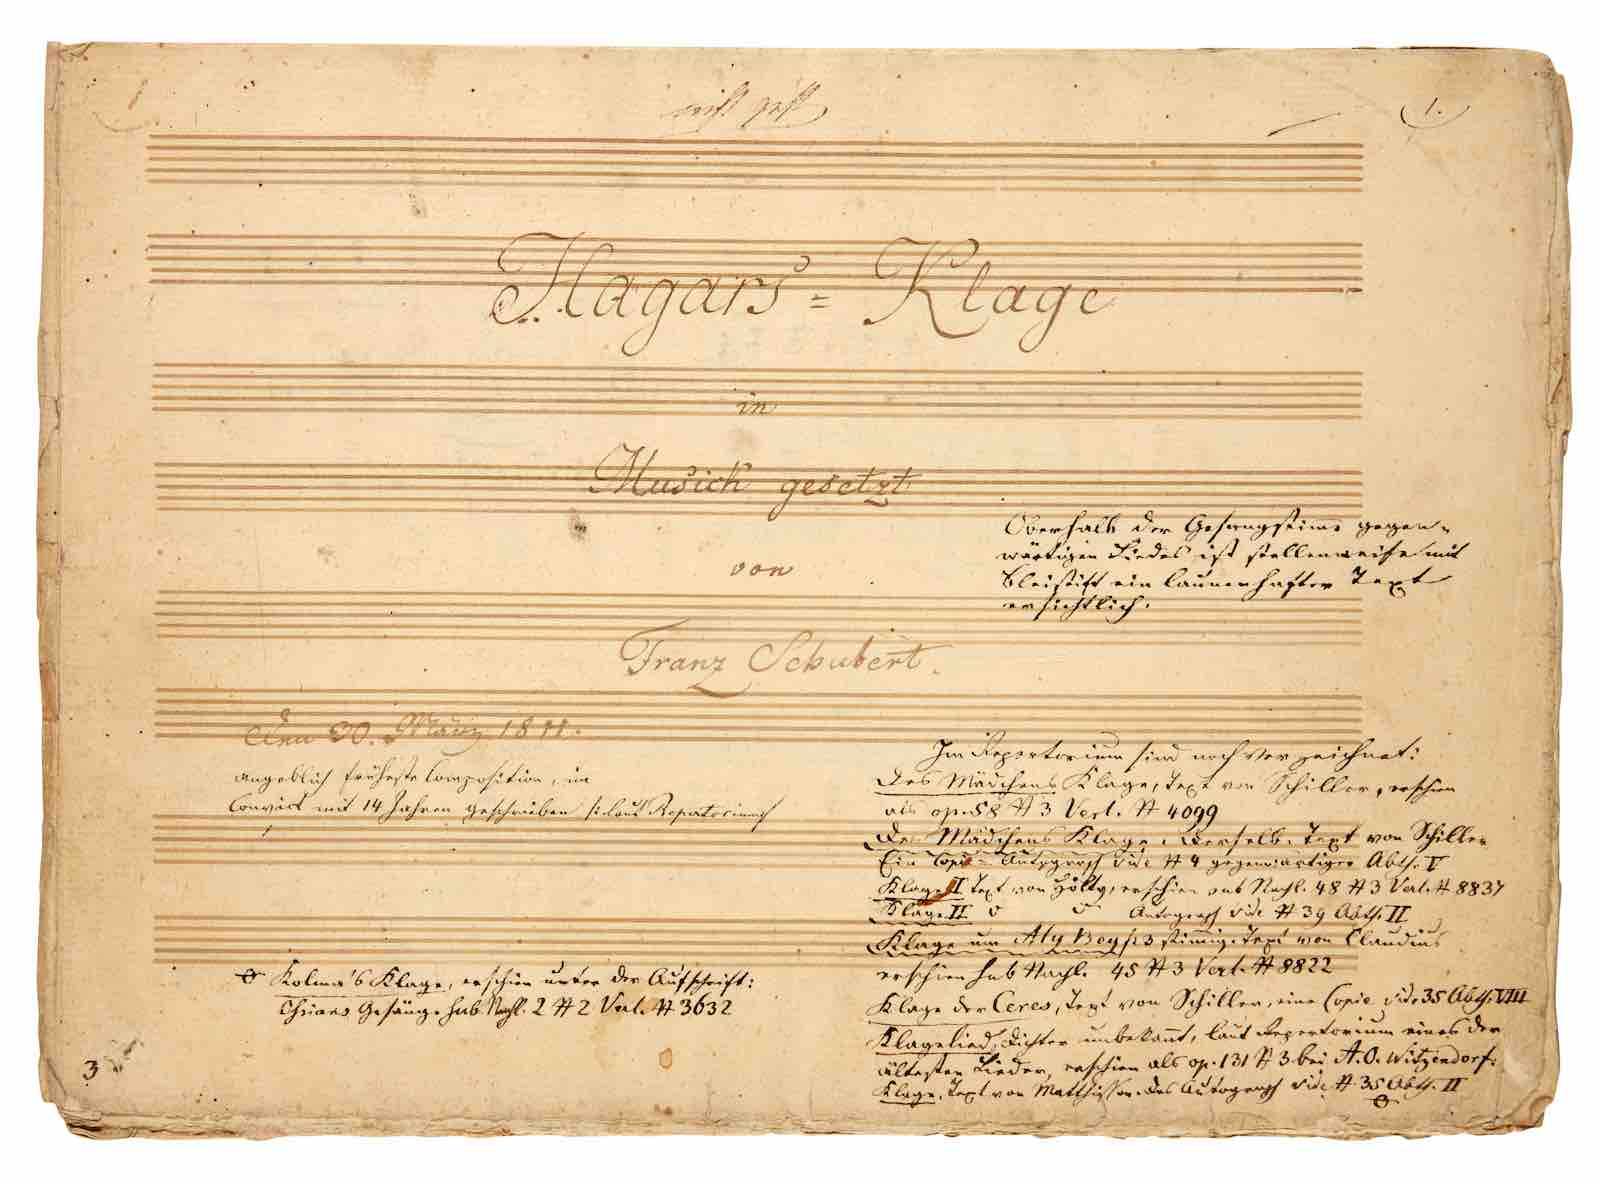 1.
Hagars = Klage
in
Musick gesetzt
von
Franz Schubert.
Oberhalb der Gesangstimme gegen-
wärtigen Liedes ist stellenweise mit
Bleistift ein launenhafter Text
ersichtlich.
Den 30. März 1811.
angeblich früheste Composition, im
Convict mit 14 Jahren geschrieben laut Repertorium
Kolma's Klage, erschien unter der Aufschrift:
Ossians Gesänge sub Nachl. 2 # 2 Verl. # 3632
3
Im Repertorium sind noch verzeichnet:
Des Mädchens Klage, Text von Schiller, erschien
als op. 58 # 3 Verl. # 4099
Des Mädchens Klage, derselbe Text von Schiller
Ein Copie Autograph vide # 4 gegenwärtiger Abth. V
Klage I Text von Hölty, erschien sub Nachl. 48 # 3 Verl. # 8837
Klage II Autograph vide # 39 Abth. II
Klage um Aly Bey, 3 stimmig, Text von Claudius
erschien sub Nachl. 45 # 3 Verl. # 8822
Klage der Ceres, Text von Schiller, eine Copie vide 35 Abth. VIII
Klagelied, Dichter unbekannt, laut Repertorium eines der
ältesten Lieder, erschien als op. 131 # 3 bei A. O. Witzendorf.
Klage, Text von Matthisson, das Autograph vide # 35 Abth. II